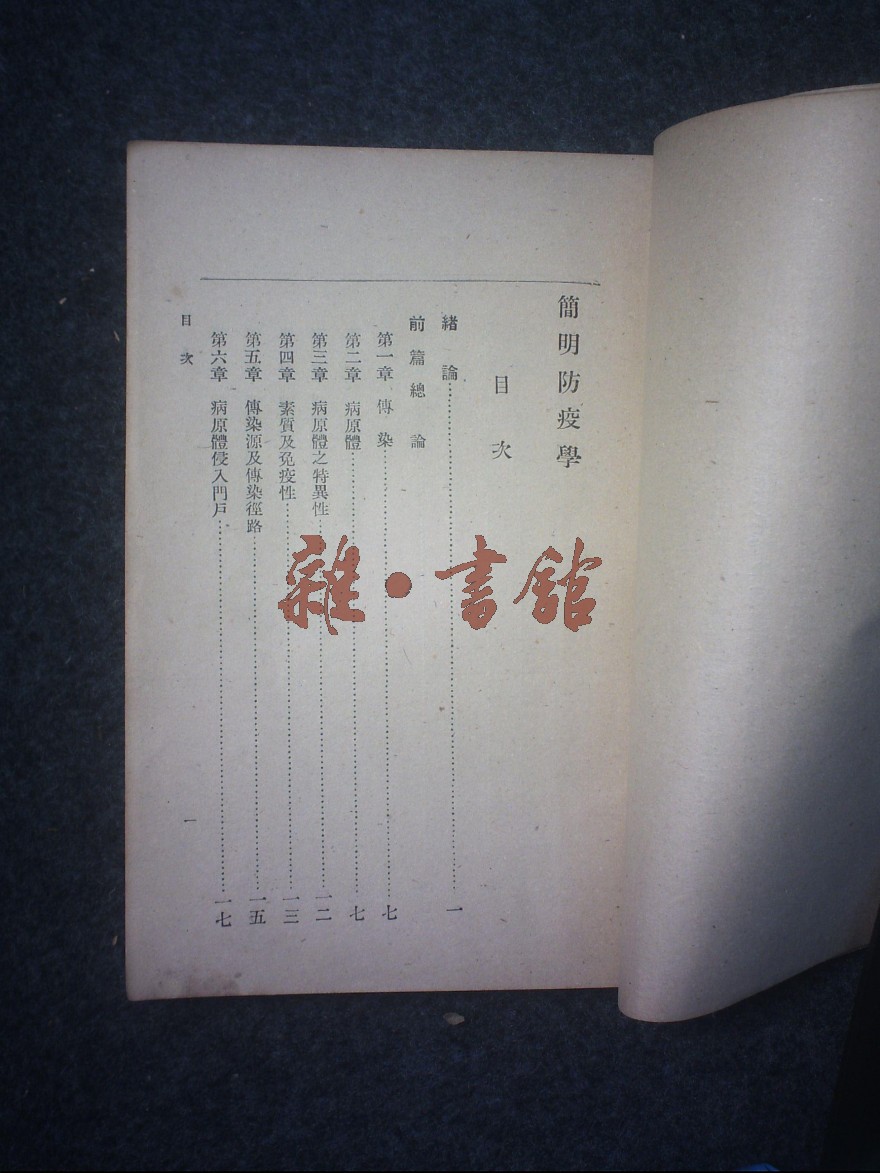 簡明防疫學
目次
緒論……一
前篇總論
第一章 傳染……七
第二章 病原體……七
第三章 病原體之特異性……一二
第四章 素質及免疫性……一三
第五章 傳染源及傳染徑路……一五
第六章 病原體侵入門戶……一七
目次 一
雜·書館